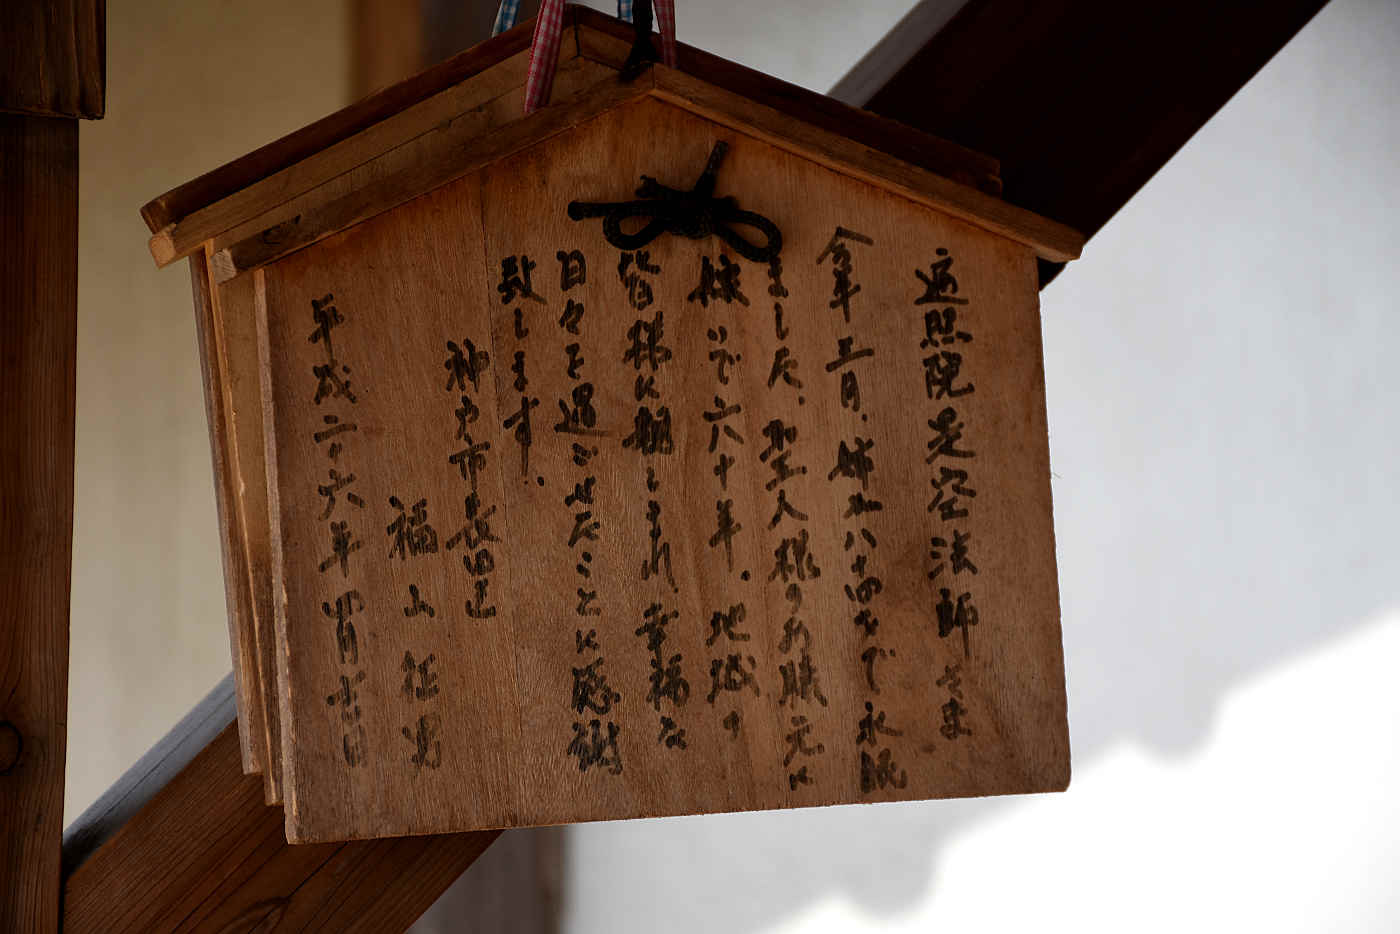 遍照院是空法師さま
今年三月、姉が八十四才で永眠
ました、聖人様のお膝元に
嫁いで六十年、地域の
皆様に親しまれ、幸福な
日々を過ごせたことに感謝
致します。
神戸市長田区
福山征男
平成二十六年四月吉日